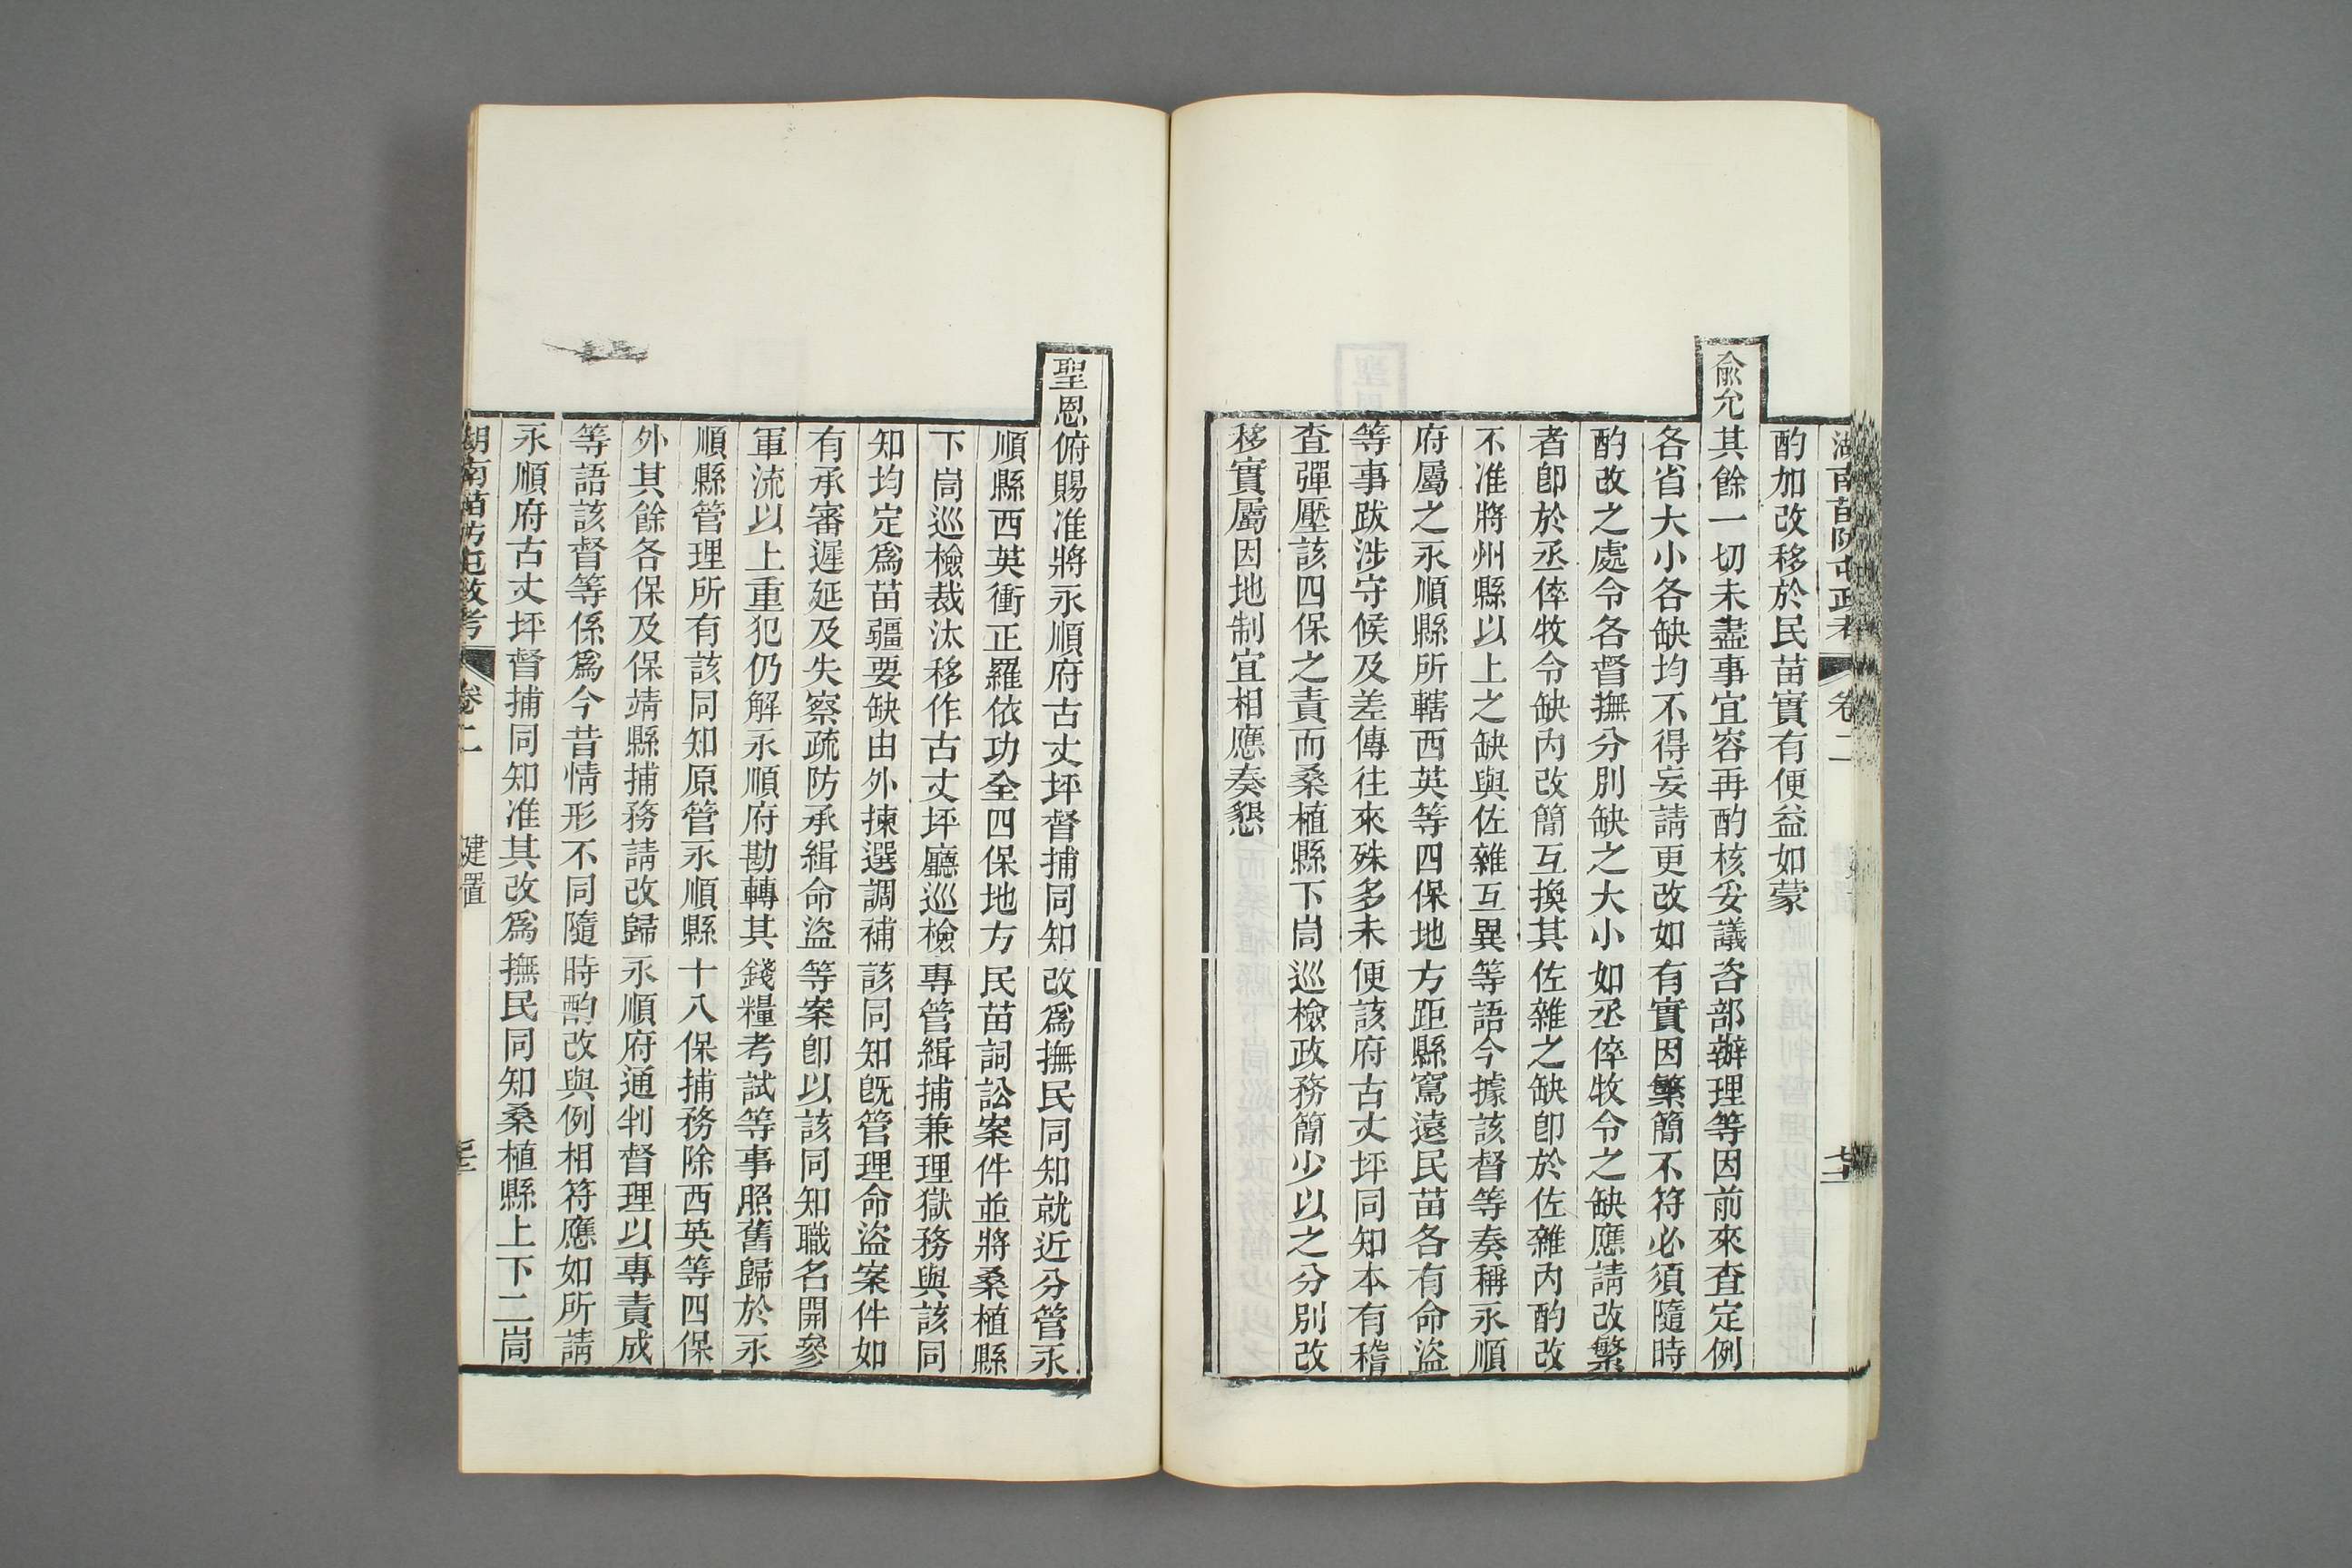 湖南苗防屯政考 卷二
酌加改移於民苗實有便益如蒙
俞允其餘一切未盡事宜容再酌核妥議咨部辦理等因前來查定例
各省大小各缺均不得妄請更改如有實因繁簡不符必須隨時
酌改之處令各督撫分別缺之大小如丞倅牧令之缺應請改繁
者卽於丞倅牧令缺內改簡互換其佐雜之缺卽於佐雜內酌改
不准將州縣以上之缺與佐雜互異等語今據該督等奏稱永順
府屬之永順縣所轄西英等四保地方距縣窵遠民苗各有命盜
等事跋涉守候及差傳往來殊多未便該府古丈坪同知本有稽
查彈壓該四保之責而桑植縣下峝巡檢政務簡少以之分別改
移實屬因地制宜相應奏懇
聖恩俯賜准將永順府古丈坪督捕同知改爲撫民同知就近分管永
順縣西英衝正羅依功全四保地方民苗詞訟案件並將桑植縣
下峝巡檢裁汰移作古丈坪廳巡檢專管緝捕兼理獄務與該同
知均定爲苗疆要缺由外揀選調補該同知旣管理命盜案件如
有承審遲延及失察疏防承緝命盜等案卽以該同知職名開參
軍流以上重犯仍解永順府勘轉其錢糧考試等事照舊歸於永
順縣管理所有該同知原管永順縣十八保捕務除西英等四保
外其餘各保及保靖縣捕務請改歸永順府通判督理以專責成
等語該督等係爲今昔情形不同隨時酌改與例相符應如所請
永順府古丈坪督捕同知准其改爲撫民同知桑植縣上下二峝
湖南苗防屯政考 卷二 建置